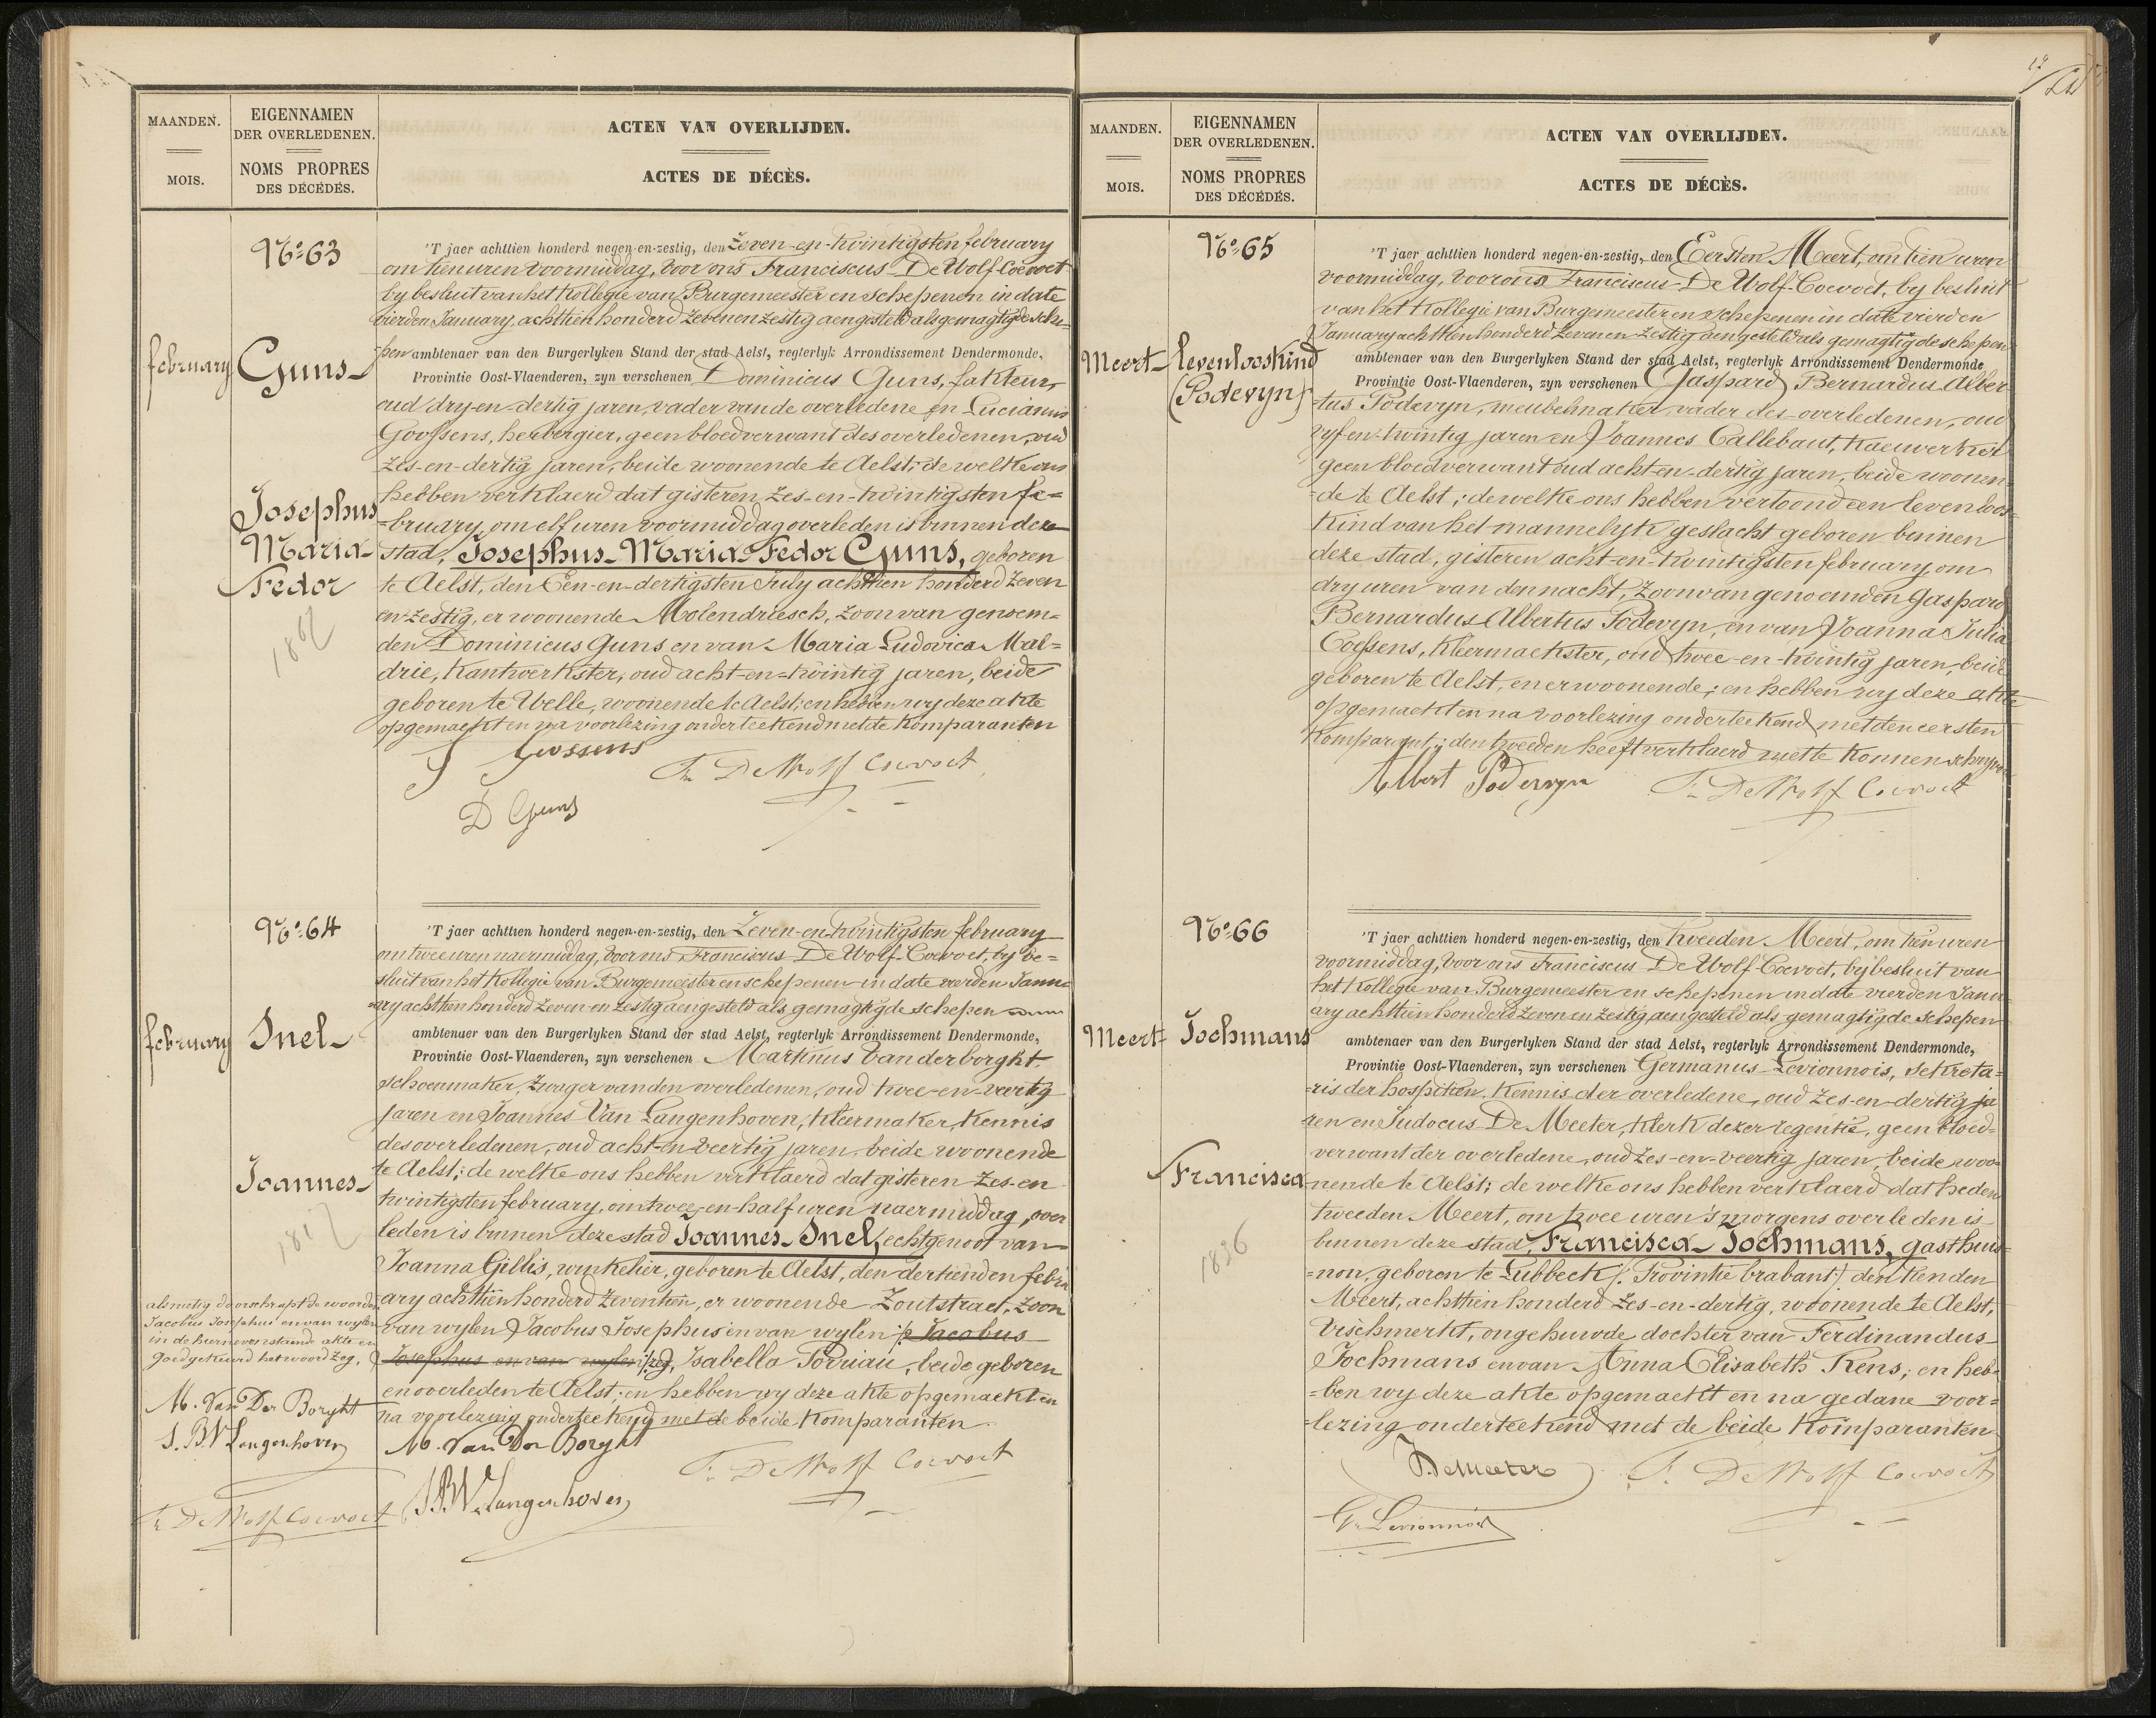 MAANDEN.
MOIS.
EIGENNAMEN
DER OVERLEDENEN.
NOMS PROPRES
DES DÉCÉDÉS.
ACTEN VAN OVERLIJDEN.
ACTES DE DÉCÈS.
No. 63
february
Guns
Josephus
Maria
Fedor
1867
'T jaer achttien honderd negen-en-zestig, den Zeven-en-twintigsten february
om tien uren voormiddag, voor ons Franciscus De Wolf-Coevoet
by besluit van het Kollegie van Burgemeester en schepenen in date
vierden January, achttien honderd zeven en zestig aengesteld als gemagtigde sche-
pen ambtenaer van den Burgerlyken Stand der stad Aelst, regterlyk Arrondissement Dendermonde,
Provintie Oost-Vlaenderen, zyn verschenen Dominicus Guns, fakteur,
oud dry-en-dertig jaren, vader van de overledene en Lucianus
Goossens, herbergier, geen bloedverwant des overledenen, oud
zes-en-dertig jaren, beide woonende te Aelst; de welke ons
hebben verklaerd dat gisteren zes-en-twintigsten fe=
=bruary, om elf uren voormiddag overleden is binnen deze
stad, Josephus-Maria-Fedor Guns, geboren
te Aelst, den Een-en-dertigsten July achttien honderd zeven
en-zestig, er woonende Molendriesch, zoon van genoem=
den Dominicus Guns en van Maria Ludovica Mal=
drie, Kantwerkster, oud acht-en-twintig jaren, beide
geboren te Welle, woonende te Aelst; en hebben wy deze akte
opgemaekt en na voorlezing onderteekend met de komparanten
Gossens
Fr. De Wolf Coevoet
D Guns
No. 64
february
Snel
Joannes
1817
'T jaer achttien honderd negen-en-zestig, den Zeven-en-twintigsten february
om twee uren naermiddag, voor ons Franciscus De Wolf-Coevoet, by be=
sluit van het Kollegie van Burgemeester en schepenen in date vierden Janu=
=ary achttien honderd zeven en zestig aengesteld als gemagtigde schepen
ambtenaer van den Burgerlyken Stand der stad Aelst, regterlyk Arrondissement Dendermonde,
Provintie Oost-Vlaenderen, zyn verschenen Martinus Vanderborght
schoenmaker, zwager van den overledenen, oud twee-en-veertig
jaren en Joannes Van Langenhoven, Kleermaker, Kennis
des overledenen, oud acht-en-veertig jaren, beide woonende
te Aelst; de welke ons hebben verklaerd dat gisteren zes-en
twintigsten february, om twee-en-half uren naermiddag, over
leden is binnen deze stad Joannes Snel, echtgenoot van
Joanna Gillis, winkelier, geboren te Aelst, den dertienden febru
ary achttien honderd zeventien, er woonende Zoutstraet, zoon
van wylen Jacobus Josephus en van wylen /: Jacobus
Josephus en van wylen :/ zeg, Isabella Poriau, beide geboren
en overleden te Aelst; en hebben wy deze akte opgemaekt en
na voorlezing onderteekend met de beide Komparanten
M. Van Der Borght
Fr. De Wolf Coevoet
J.B.V. Langenhoven
als nietig doorschrapt de woorden
Jacobus Josephus en van wylen
in de hiernevenstaande akte en
goedgekeurd het woord zeg,
M. Van Der Borght
J.B.V Langenhoven
Fr De Wolf Coevoet
MAANDEN.
MOIS.
EIGENNAMEN
DER OVERLEDENEN.
NOMS PROPRES
DES DÉCÉDÉS.
ACTEN VAN OVERLIJDEN.
ACTES DE DÉCÈS.
No. 65
Meert
levenlooskind
(Podevyn)
'T jaer achttien honderd negen-en-zestig, den Eersten Meert, om tien uren
voormiddag, voor ons Franciscus De Wolf-Coevoet, by besluit
van het Kollegie van Burgemeester en schepenen in date vierden
January achttien honderd zeven en zestig aengesteld als gemagtigde schepen
ambtenaer van den Burgerlyken Stand der stad Aelst, regterlyk Arrondissement Dendermonde
Provintie Oost-Vlaenderen, zyn verschenen Gaspard Bernardus Alber
tus Podevyn, meubelmaker, vader des overledenen, oud
vyf en-twintig jaren en Joannes Callebaut,
geen bloedverwant oud acht-en-dertig jaren, beide woonen=
=de te Aelst; de welke ons hebben vertoond een levenloos=
kind van het mannelyk geslacht geboren binnen
deze stad, gisteren acht-en-twintigsten february om
dry uren van den nacht, zoon van genoemden Gaspard
Bernardus Albertus Podevyn, en van Joanna Julia
Coessens, Kleermaekster, oud twee-en-twintig jaren, beide
geboren te Aelst, en er woonende; en hebben wy deze akte
opgemaekt en na voorlezing onderteekend met den eersten
Komparant; den tweeden heeft verklaerd niet te konnen schryven
Albert Podevyn
Fr. De Wolf Coevoet
No. 66
Meert
Jochmans
Francisca
1836
'T jaer achttien honderd negen-en-zestig, den tweeden Meert, om tien uren
voormiddag, voor ons Franciscus De Wolf-Coevoet, by besluit van
het Kollegie van Burgemeester en schepenen in date vierden Janu
ary achttien honderd zeven en zestig aengesteld als gemagtigde schepen
ambtenaer van den Burgerlyken Stand der stad Aelst, regterlyk Arrondissement Dendermonde,
Provintie Oost-Vlaenderen, zyn verschenen Germanus Levionnois, sekreta=
=ris der hospitien, Kennis der overledene, oud zes-en-dertig ja
ren en Judocus De Meeter, Klerk dezer regentie, geen bloed=
verwant der overledene, oud zes-en-veertig jaren, beide woo=
nende te Aelst; de welke ons hebben verklaerd dat heden
tweeden Meert, om twee uren 's morgens overleden is
binnen deze stad, Francisca Jochmans, gasthuis=
=non, geboren te Lubbeek /: Provintie brabant :/ den tienden
Meert, achttien honderd zes-en-dertig, woonende te Aelst,
Vischmerkt, ongehuwde dochter van Ferdinandus
Jochmans en van Anna Elisabeth Rens; en heb=
=ben wy deze akte opgemaekt en na gedane voor=
=lezing onderteekend met de beide Komparanten
J. Demeeter
F. De Wolf Coevoet
G. Levionnois